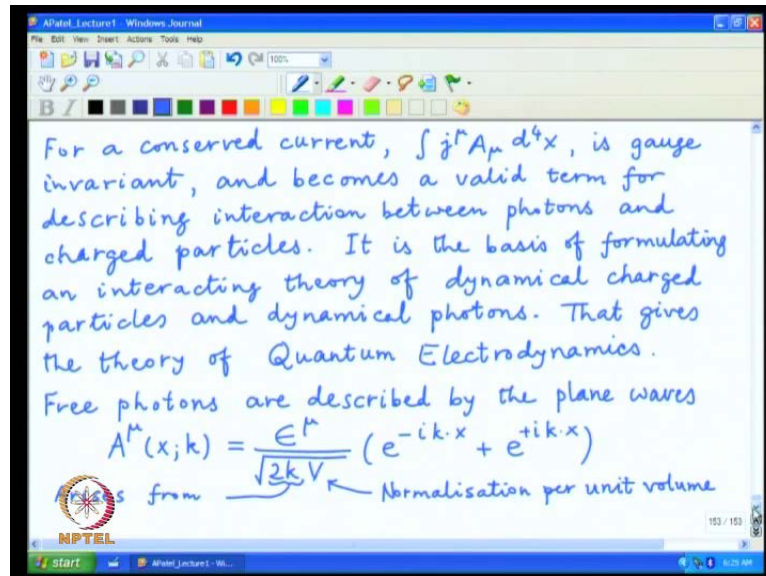 APatel_Lecture1 - Windows Journal
File Edit View Insert Actions Tools Help
100%
B I
For a conserved current, ∫ j^μ A_μ d⁴x, is gauge
invariant, and becomes a valid term for
describing interaction between photons and
charged particles. It is the basis of formulating
an interacting theory of dynamical charged
particles and dynamical photons. That gives
the theory of Quantum Electrodynamics.
Free photons are described by the plane waves
A^μ(x;k) = ε^μ/√(2kV) (e^{-ik·x} + e^{+ik·x})
Arises from Normalisation per unit volume
NPTEL
153 / 153
start APatel_Lecture1 - Wi... 6:29 AM